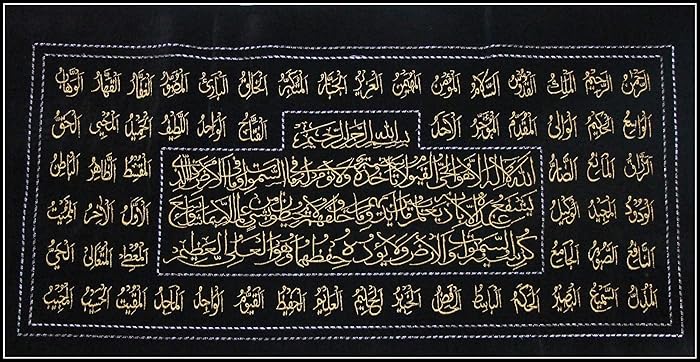 الرحمن الرحيم الملك القدوس السلام المؤمن المهيمن العزيز الجبار المتكبر الخالق البارئ المصور الغفار القهار الوهاب
الواسع الحكيم الوالي المقدم المؤخر الأحد بسم الله الرحمن الرحيم الفتاح الواحد اللطيف الحميد المحيي الحق
الرزاق المانع الضار الله لا اله الا هو الحي القيوم لا تاخذه سنة ولا نوم له ما في السموات وما في الارض من ذا الذي المقسط الظاهر الباطن
الودود المجيد الوكيل يشفع عنده الا باذنه يعلم ما بين ايديهم وما خلفهم ولا يحيطون بشيء من علمه الا بما شاء وسع الأول الآخر المميت
النافع الصبور الجامع كرسيه السموات والارض ولا يؤده حفظهما وهو العلي العظيم المتعالي الحي
المذل السميع البصير الحكم الباسط الخافض الخبير الحليم العليم الحفيظ القيوم الواجد الماجد المقيت الحسيب المجيب